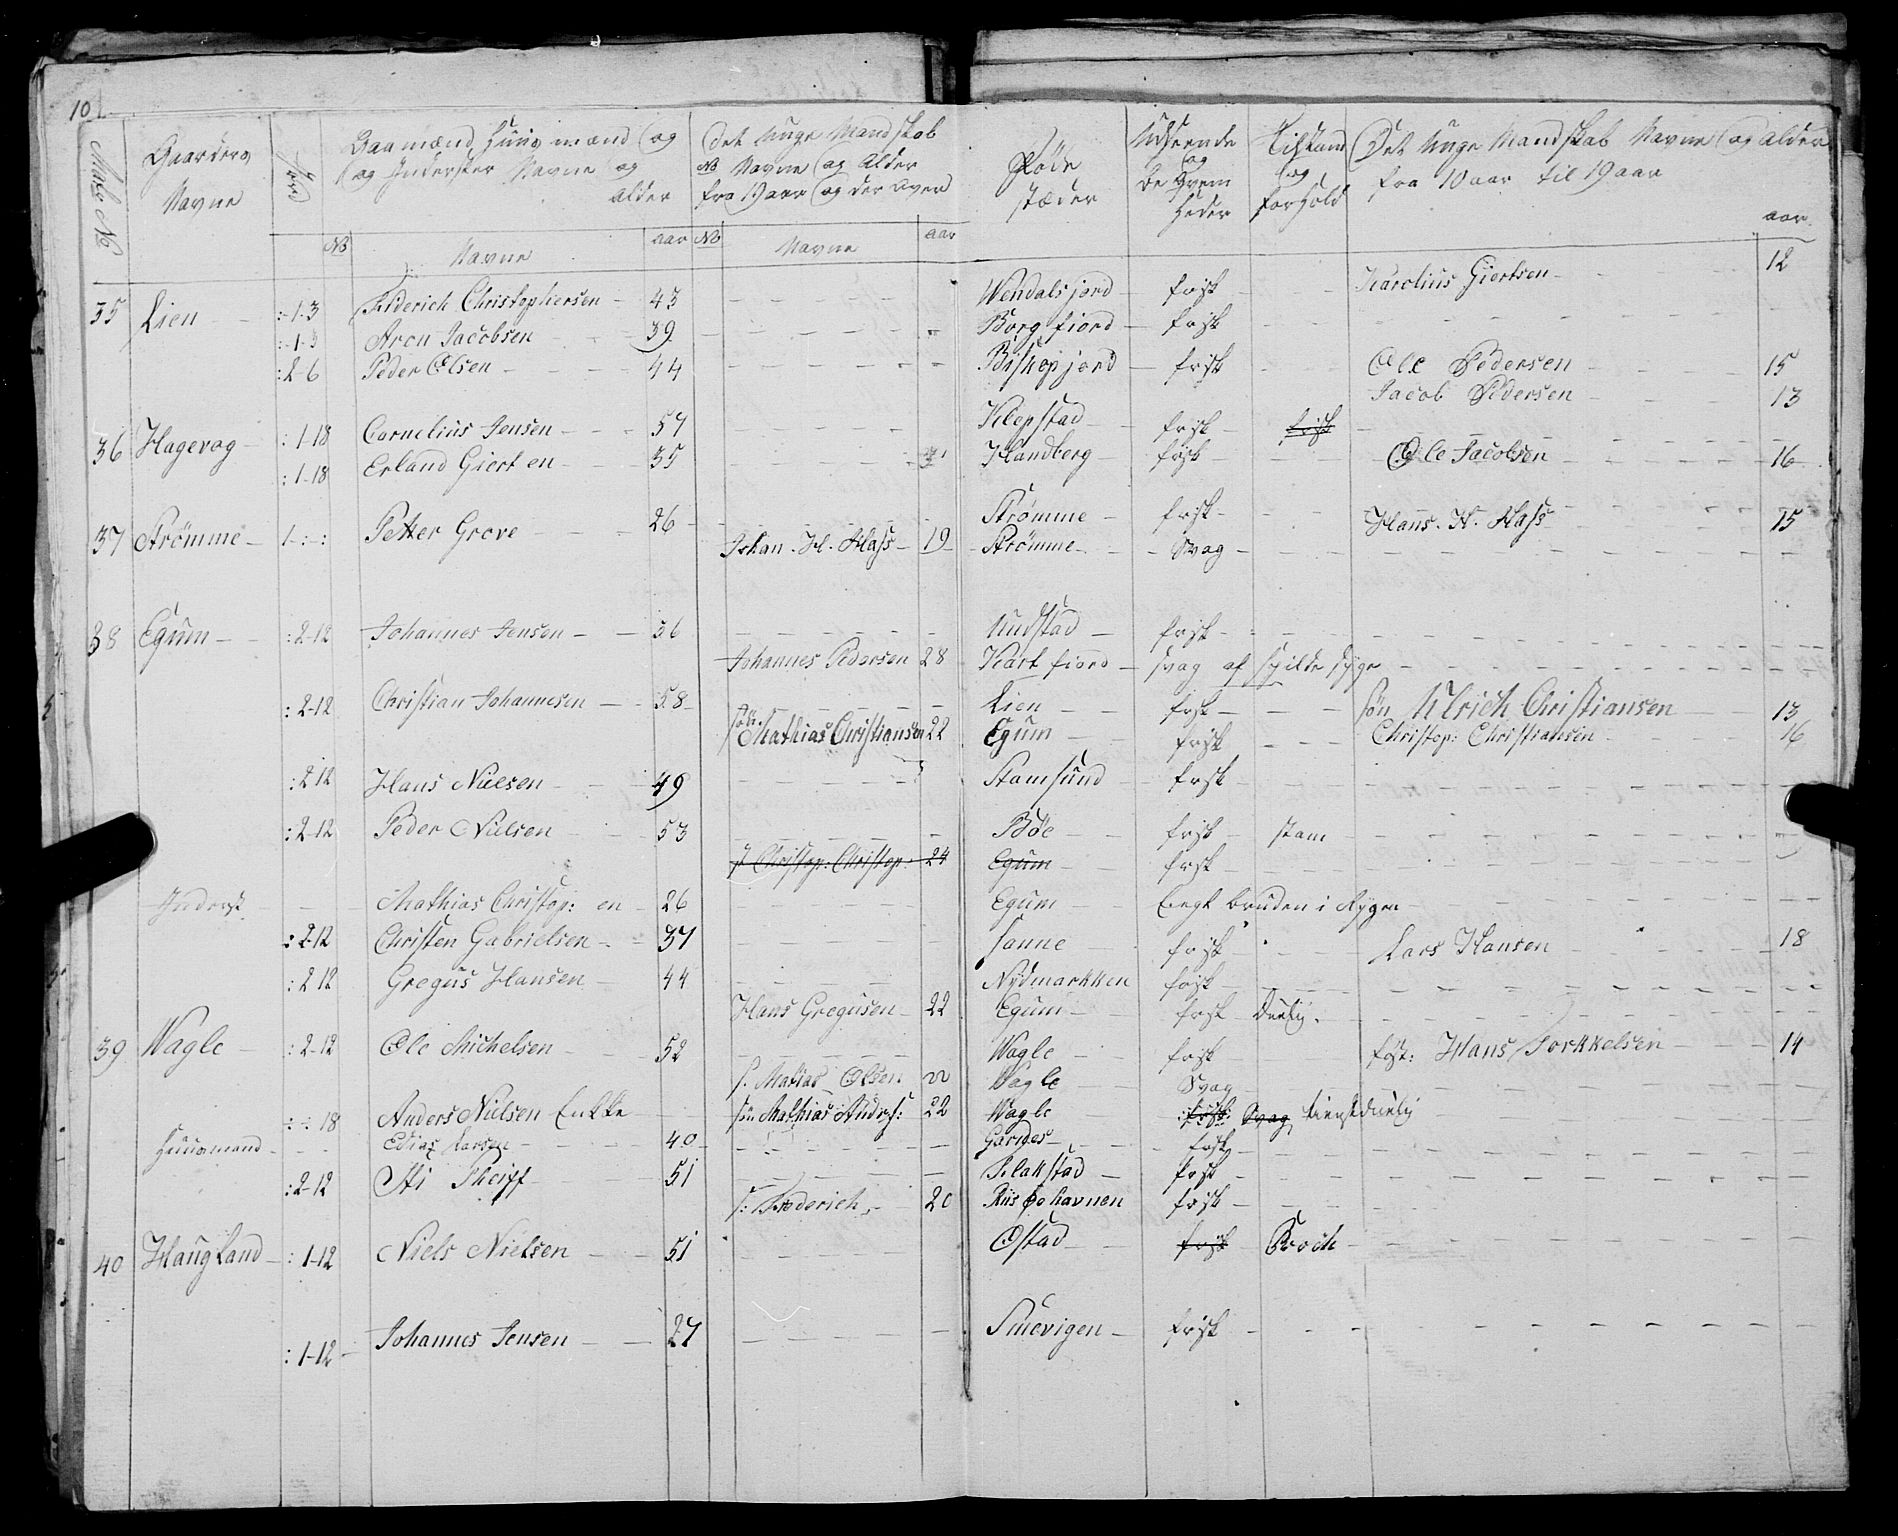 10
Matr No | Gaardens Navne | Jord | Gaamænd Huusmænd og og Inderster Navne og Alder | Det Unge Mandskab No Navne og Alder fra 19 aar og der over | Føde stæder | Udseende og Beqvem Heder | Tilstand og forhold | Det Unge Mandskab Navne og Alder fra 10 aar til 19 aar
No | Navne | aar | No | Navne | aar | aar
Karolius Giertsen 12
35 Lien :-1-3 Friderich Christophersen 43 Wendalsjord frisk
:-1-3 Aron Jacobsen 39 Borgfiord frisk
:2-6 Peder Olsen 44 Biskopjord frisk Ole Pedersen 15
Jacob Pedersen 13
36 Hagevog :1-18 Cornelius Jensen 57 Klepstad frisk frisk
:1-18 Erland Giert en 35 Handberg frisk Ole Jacobsen 16
37 Strømme 1-:-: Petter Grove 26 Strømme frisk Hans. H. Hass 15
Johan. H. Hass 19 Strømme Svag
38 Egum :2-12 Johannes Jensen 36 Uudstad frisk
Johannes Pedersen 28 Kartfiord svag af spilde syge
:2-12 Christian Johannesen 58 Lien frisk søn Ulrich Christiansen 13
søn Mathias Christiansen 22 Egum frisk Christop: Christiansen 16
:2-12 Hans Nielsen 49 Stamsund frisk
:2-12 Peder Nielsen 53 Bøe frisk stam
s Christop: Christop: 24 Egum frisk
Inderst Mathias Christop: en 26 Egum bruden i Rygen
:2-12 Christen Gabrielsen 37 sanne frisk Lars Hansen 18
:2-12 Gregus Hansen 44 Nydmarkken frisk
Hans Gregusen 22 Egum frisk duelig.
39 Wagle :2-12 Ole Michelsen 52 Wagle frisk fost: Hans Torkkelsen 14
s. Matias Olsen 22 Wagle Svag
:-:18 Anders Nielsen Enkke søn Mathias Anders: 22 Wagle frisk Svag tienstduelig
Huusmand Edias Larsen 40 Garnes frisk
:2-12 Ati Theiff 51 Klakstad frisk
s: Frederich 20 Riisøehavnen frisk
40 Haugland :1-12 Niels Nielsen 51 Ostad frisk Broch
:1-12 Johannes Jensen 27 Smevigen frisk